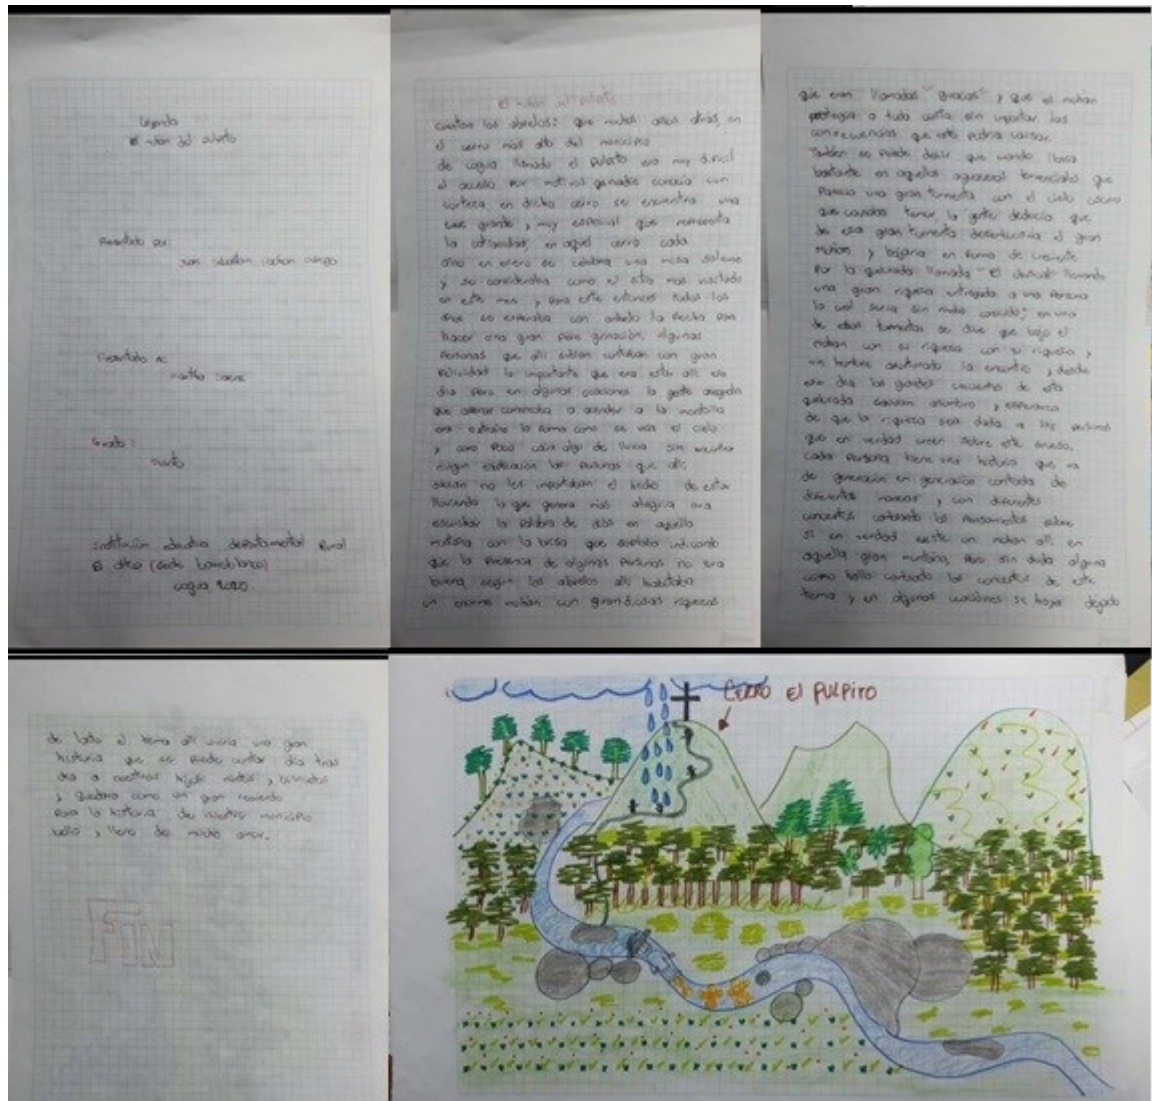 Leyenda
El mohan del pulpito
Presentado por:
Presentado a:
Martha
Grado:
Institución educativa departamental Rural
El altico (sede
cogua 2020.
El mohan del pulpito
cuentan los abuelos: que muchos años atrás, en
el cerro más alto del municipio
de cogua llamado el pulpito era muy dificil
el acceso por motivos que nadie conocía con
certeza, en dicho cerro se encuentra una
cruz grande y muy especial que representa
la en aquel cerro cada
año en enero se celebra una misa
y se considera como el sitio mas visitado
en este mes y para este entonces todos los
años se esperaba con anhelo la fecha para
hacer una gran pere grinación, algunas
personas que allí subían contaban con gran
felicidad lo importante que era estar allí ese
día pero en algunas ocasiones la gente
que a a la montaña
era extraño la forma como se veía el cielo
y como poco caía algo de lluvia sin encontrar
ningun explicación las personas que allí
no les importaban el hecho de estar
lloviendo lo que genera más alegría era
escuchar la palabra de dios en aquella
montaña con la brisa que soplaba indicando
que la presencia de algunas personas no era
buena, según los abuelos allí habitaba
un enorme mohán con grandiosas riquezas
que eran llamadas "guacas" y que el mohán
protegía a toda costa sin importar las
consecuencias que esto podría causar.
También se puede decir que cuando llovía
bastante en aquellos aguaceros torrenciales que
parecía una gran tormenta con el cielo oscuro
que causaba temor, la gente deducía que
de esa gran tormenta el gran
mohán y bajaría en forma de creciente
por la quebrada llamada "El llevando
una gran riqueza entregada a una persona
la cual sería sin nada; en una
de esas tormentas se dice que bajo el
mohan con su riqueza con su riqueza y
un hombre la encontro y desde
ese día las grandes crecientes de esta
quebrada causan asombro y esperanza
de que la riqueza sea dada a las personas
que en verdad creen sobre este suceso,
cada persona tiene una historia que va
de generación en generación contada de
diferentes maneras y con diferentes
conceptos los pensamientos sobre
si en verdad existe un mohan allí en
aquella gran montaña, pero sin duda alguna
como bello los conceptos de este
tema y en algunas ocasiones se haya dejado
de lado el tema allí una gran
historia que se puede contar día tras
día a nuestros hijos nietos y bisnietos
y quedara como un gran recuerdo
para la historia de nuestro municipio
bello y lleno de mucho amor.
FIN
CERRO El PULPITO